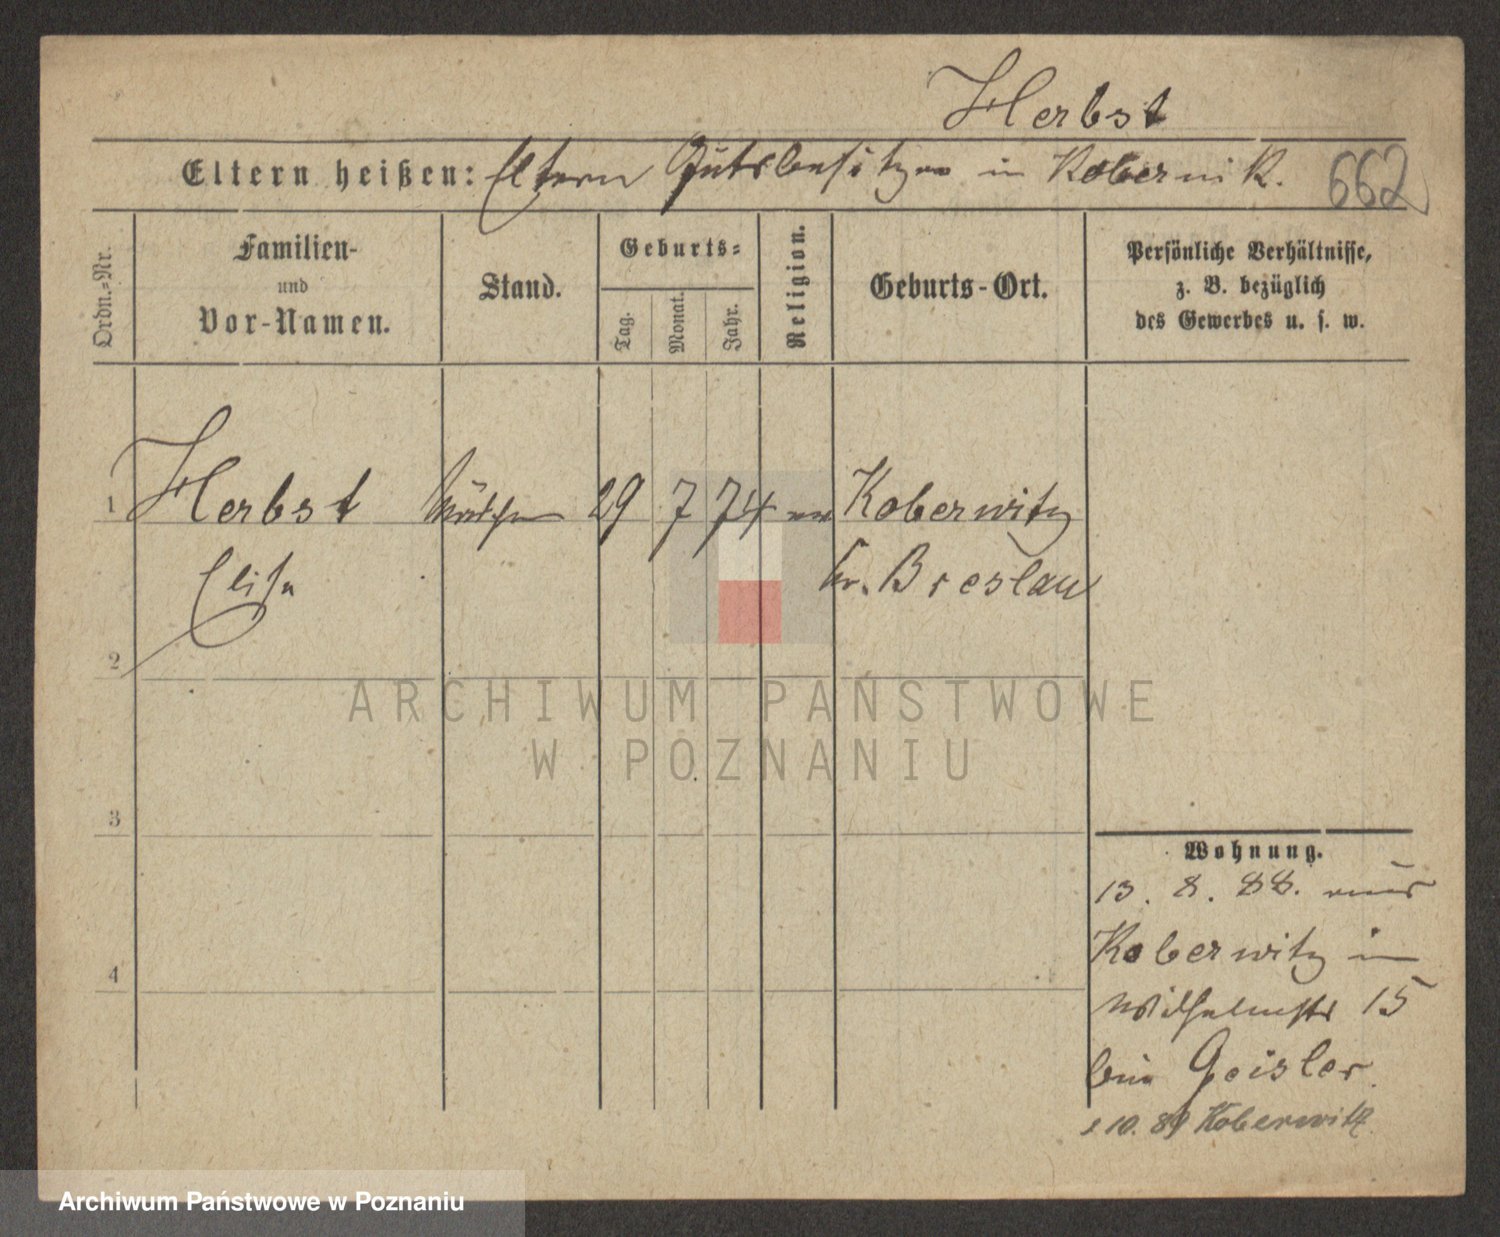 Herbst
Eltern heißen: Eltern Gutsbesitzer in Kobernik.
662
Ordn.-Nr.
Familien-
und
Vor-Namen.
Stand.
Geburts-
Tag.
Monat.
Jahr.
Religion.
Geburts-Ort.
Persönliche Verhältnisse,
z. B. bezüglich
des Gewerbes u. s. w.
1 Herbst Mädchen 29 7 74 ev Koberwitz
Elise Kr. Breslau
2
ARCHIWUM PAŃSTWOWE
W POZNANIU
3
Wohnung.
13. 8. 88. aus
Koberwitz in
4
Wilhelmstr 15
bei Geisler.
10. 89 Koberwitz
Archiwum Państwowe w Poznaniu